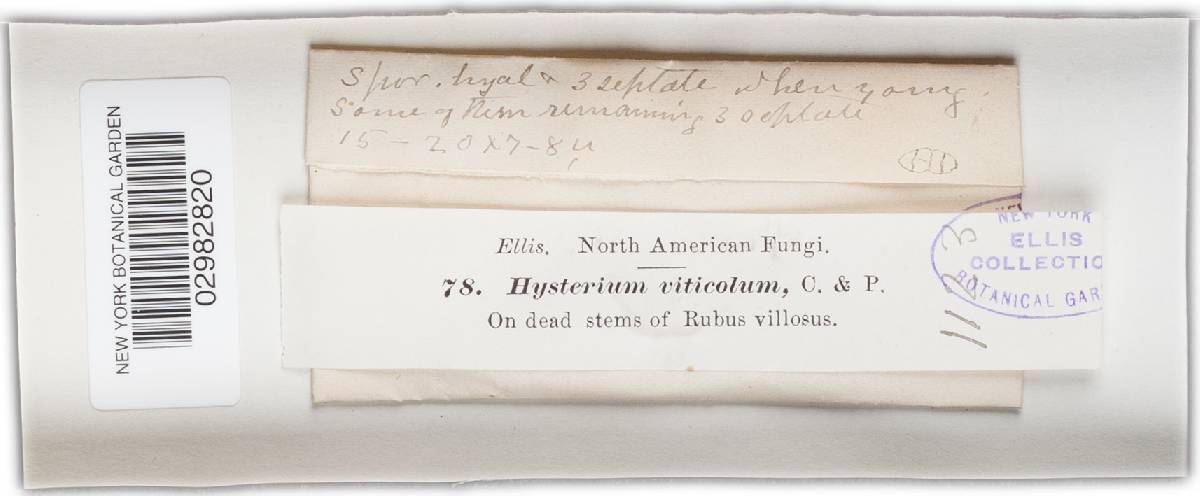 Spor. hyal & 3 septate when young,
Some of them remaining 3 septate
15 - 20 x 7-8 µ
NEW YORK BOTANICAL GARDEN
02982820
Ellis, North American Fungi.
78. Hysterium viticolum, C. & P.
On dead stems of Rubus villosus.
NEW YORK
ELLIS
COLLECTIO
BOTANICAL GAR
1123